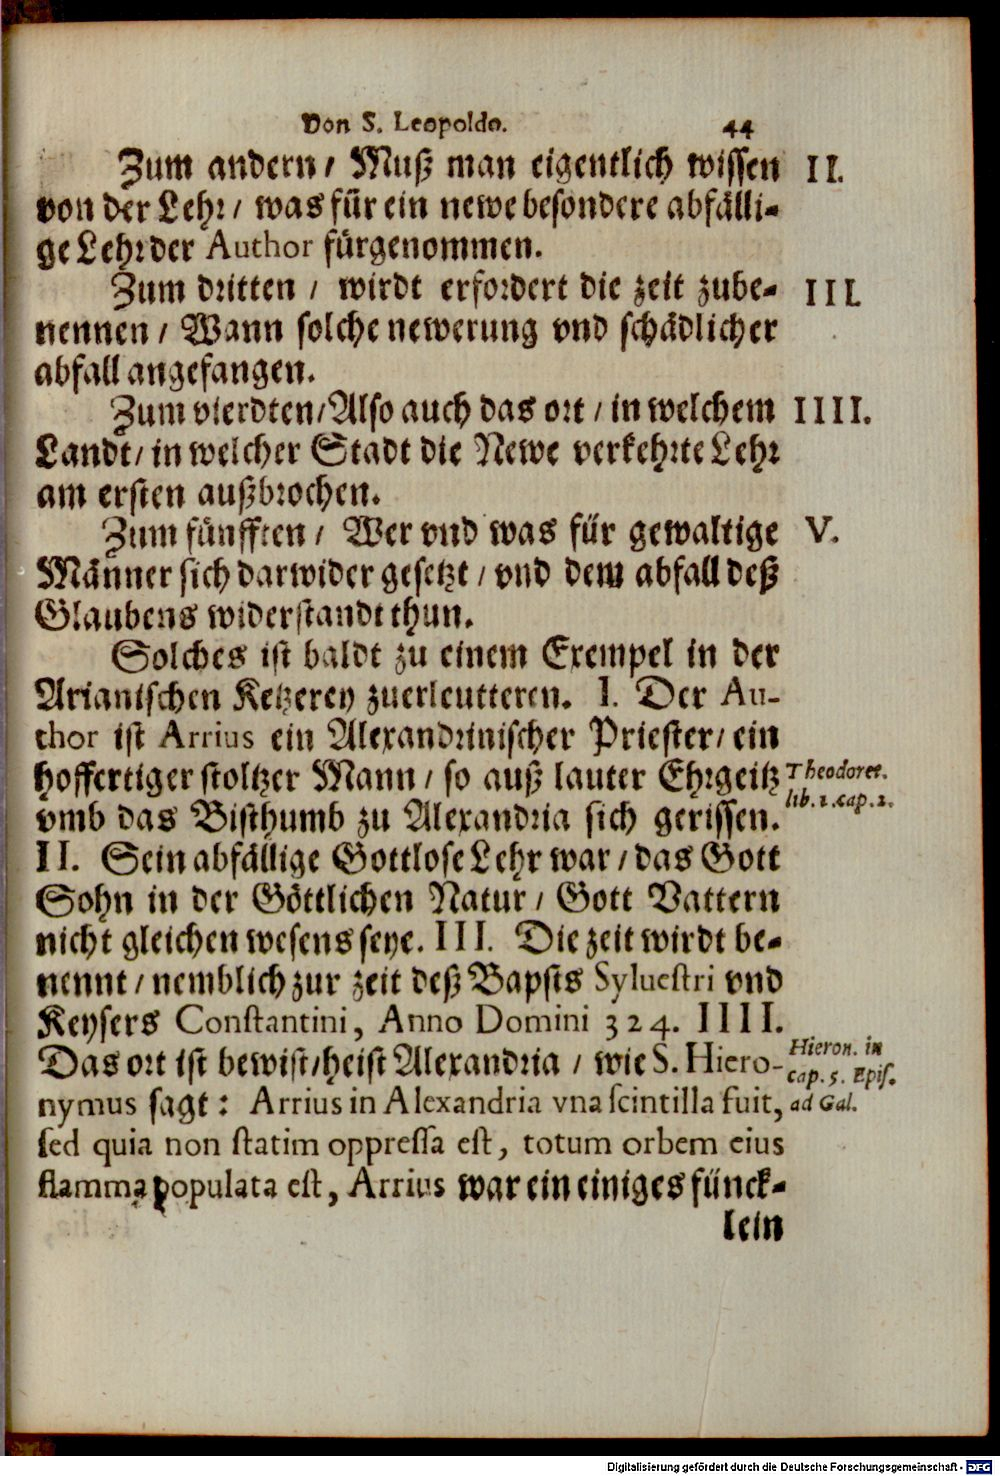 Von S. Leopoldo. 44
Zum andern / Muß man eigentlich wissen II.
von der Lehr / was für ein newe besondere abfälli-
ge Lehr der Author fürgenommen.
Zum dritten / wirdt erfordert die zeit zube- III.
nennen / Wann solche newerung vnd schädlicher
abfall angefangen.
Zum vierdten / Also auch das ort / in welchem IIII.
Landt / in welcher Stadt die Newe verkehrte Lehr
am ersten außbrochen.
Zum fünfften / Wer vnd was für gewaltige V.
Männer sich darwider gesetzt / vnd dem abfall deß
Glaubens widerstandt thun.
Solches ist baldt zu einem Exempel in der
Arianischen Ketzerey zuerleutteren. I. Der Au-
thor ist Arrius ein Alexandrinischer Priester / ein
hoffertiger stoltzer Mann / so auß lauter Ehrgeitz Theodoret.
vmb das Bisthumb zu Alexandria sich gerissen. lib. 1. cap. 2.
II. Sein abfällige Gottlose Lehr war / das Gott
Sohn in der Göttlichen Natur / Gott Vattern
nicht gleichen wesens seye. III. Die zeit wirdt be-
nennt / nemblich zur zeit deß Bapsts Syluestri vnd
Keysers Constantini, Anno Domini 324. IIII.
Das ort ist bewist / heist Alexandria / wie S. Hiero- Hieron. in cap. 5. Epis.
nymus sagt: Arrius in Alexandria vna scintilla fuit, ad Gal.
sed quia non statim oppressa est, totum orbem eius
flamma populata est, Arrius war ein einiges fünck-
lein
Digitalisierung gefördert durch die Deutsche Forschungsgemeinschaft - DFG